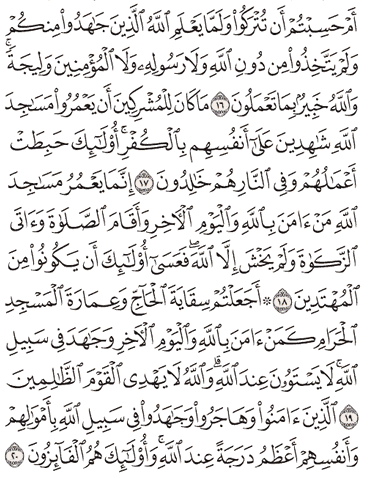 أَمْ حَسِبْتُمْ أَن تُتْرَكُوا۟ وَلَمَّا يَعْلَمِ ٱللَّهُ ٱلَّذِينَ جَـٰهَدُوا۟ مِنكُمْ
وَلَمْ يَتَّخِذُوا۟ مِن دُونِ ٱللَّهِ وَلَا رَسُولِهِۦ وَلَا ٱلْمُؤْمِنِينَ وَلِيجَةً ۚ
وَٱللَّهُ خَبِيرٌۢ بِمَا تَعْمَلُونَ ١٦ مَا كَانَ لِلْمُشْرِكِينَ أَن يَعْمُرُوا۟ مَسَـٰجِدَ
ٱللَّهِ شَـٰهِدِينَ عَلَىٰٓ أَنفُسِهِم بِٱلْكُفْرِ ۚ أُو۟لَـٰٓئِكَ حَبِطَتْ
أَعْمَـٰلُهُمْ وَفِى ٱلنَّارِ هُمْ خَـٰلِدُونَ ١٧ إِنَّمَا يَعْمُرُ مَسَـٰجِدَ
ٱللَّهِ مَنْ ءَامَنَ بِٱللَّهِ وَٱلْيَوْمِ ٱلْـَٔاخِرِ وَأَقَامَ ٱلصَّلَوٰةَ وَءَاتَى
ٱلزَّكَوٰةَ وَلَمْ يَخْشَ إِلَّا ٱللَّهَ ۖ فَعَسَىٰٓ أُو۟لَـٰٓئِكَ أَن يَكُونُوا۟ مِنَ
ٱلْمُهْتَدِينَ ١٨ ۞ أَجَعَلْتُمْ سِقَايَةَ ٱلْحَآجِّ وَعِمَارَةَ ٱلْمَسْجِدِ
ٱلْحَرَامِ كَمَنْ ءَامَنَ بِٱللَّهِ وَٱلْيَوْمِ ٱلْـَٔاخِرِ وَجَـٰهَدَ فِى سَبِيلِ
ٱللَّهِ ۚ لَا يَسْتَوُۥنَ عِندَ ٱللَّهِ ۗ وَٱللَّهُ لَا يَهْدِى ٱلْقَوْمَ ٱلظَّـٰلِمِينَ
١٩ ٱلَّذِينَ ءَامَنُوا۟ وَهَاجَرُوا۟ وَجَـٰهَدُوا۟ فِى سَبِيلِ ٱللَّهِ بِأَمْوَٰلِهِمْ
وَأَنفُسِهِمْ أَعْظَمُ دَرَجَةً عِندَ ٱللَّهِ ۚ وَأُو۟لَـٰٓئِكَ هُمُ ٱلْفَآئِزُونَ ٢٠